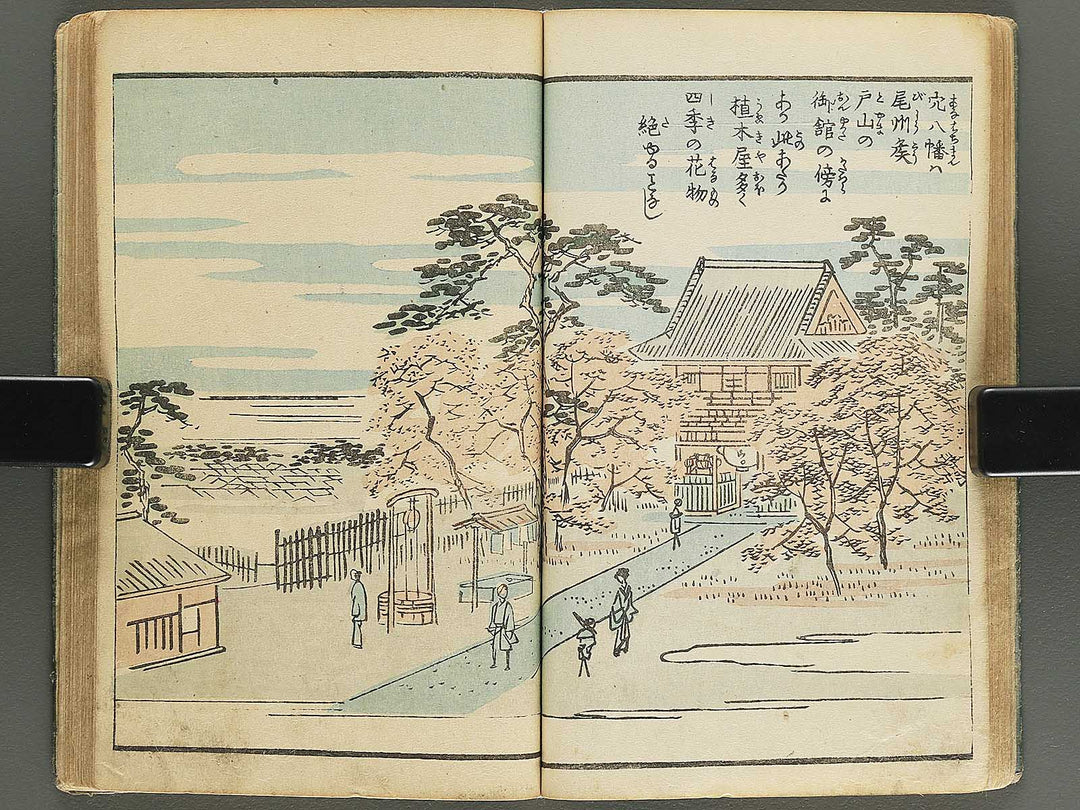 穴八幡ハ
尾州矦
戸山の
御舘の傍に
より此あたり
植木屋多く
四季の花物
絶る事なし